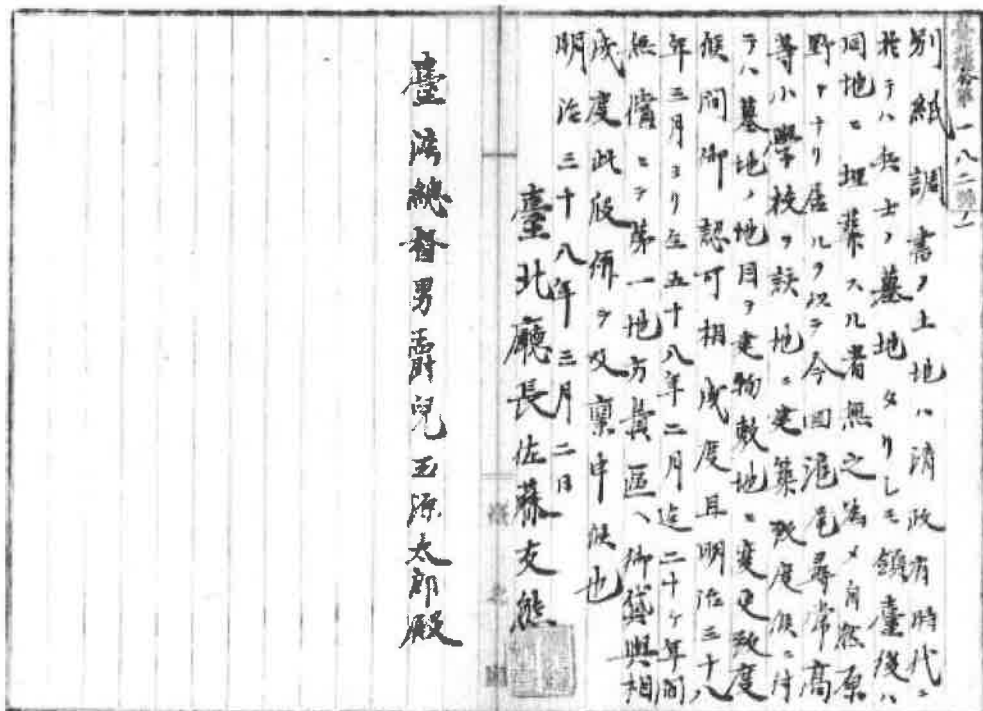 臺北總務第一八二號ノ一
別紙調書ノ土地ハ清政有時代ニ
於テハ兵士ノ墓地タリシモ領臺後ハ
同地ニ埋葬スル者無之為メ自然原
野トナリ居ルヲ以テ今回滬尾尋常高
等小學校ヲ該地ニ建築致度候ニ付
テハ墓地ノ地目ヲ建物敷地ニ変更致度
候間御認可相成度且明治三十八
年三月ヨリ仝五十八年二月迄二十ヶ年間
無償ニテ第一地方費區ヘ御貸與相
成度此段併テ及稟申候也
明治三十八年三月二日
臺北廳長佐藤友熊
臺灣總督男爵兒玉源太郎殿